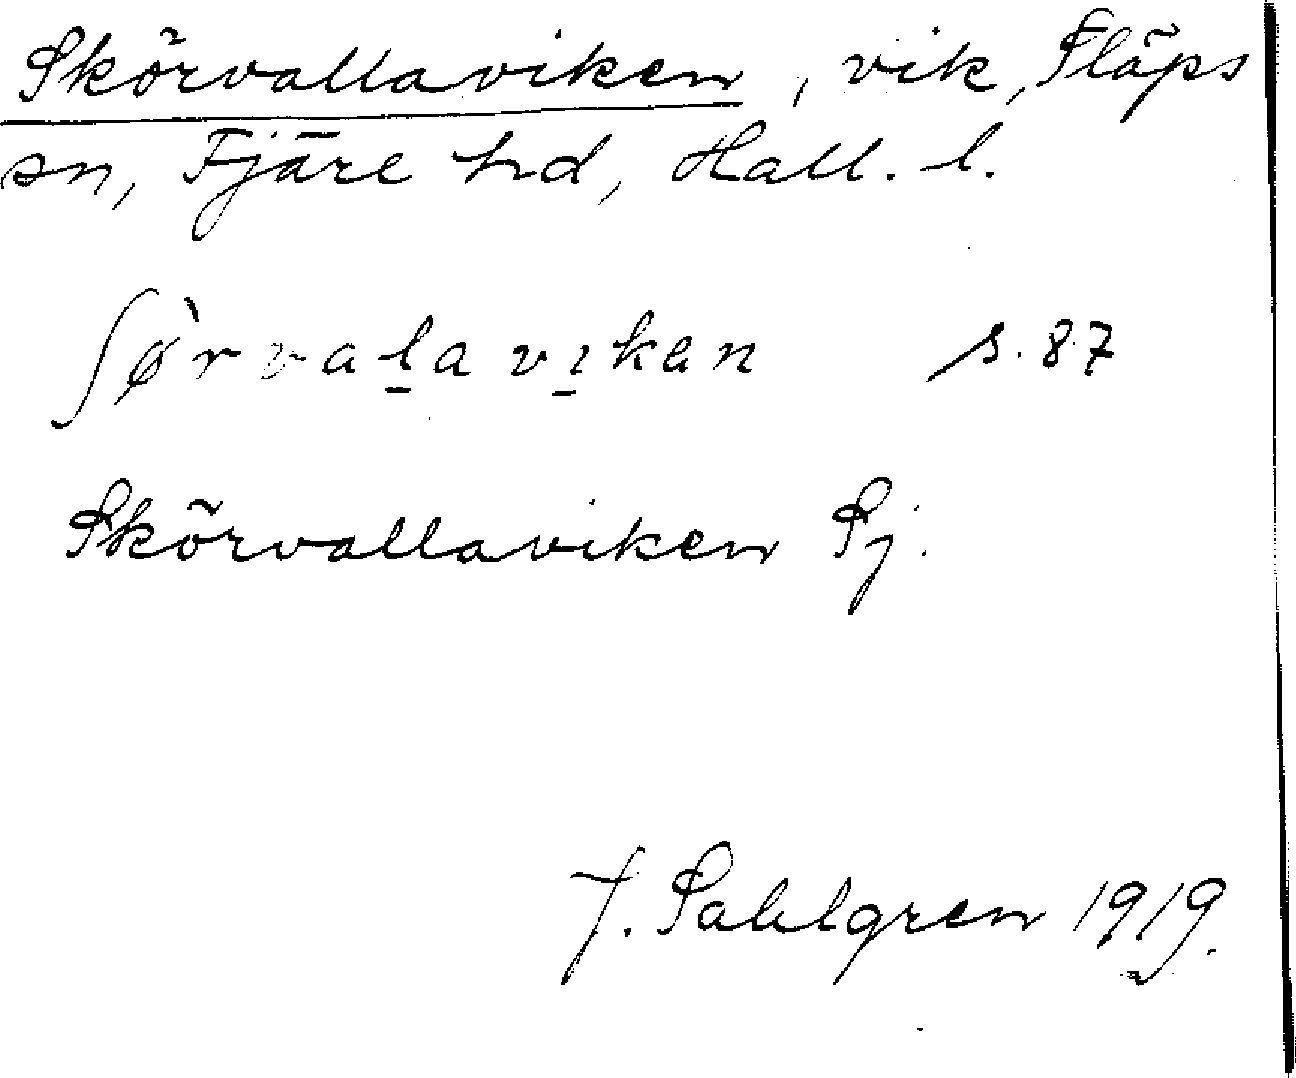 Skörvallaviken, vik, Släps
sn, Fjäre hd, Hall. l.
ʃø̀rvalavikan s. 87
Skörvallaviken Sj.
J. Sahlgren 1919.